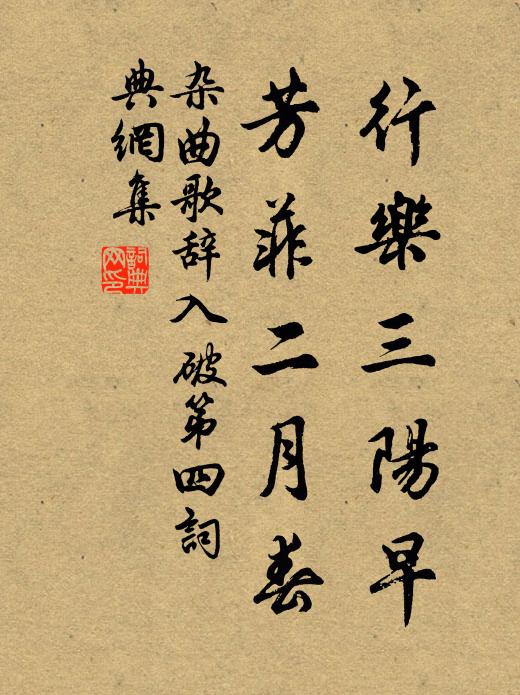 行樂三陽早
芳菲二月春
杂曲歌辞入破第四詞
典網集
詞典网印